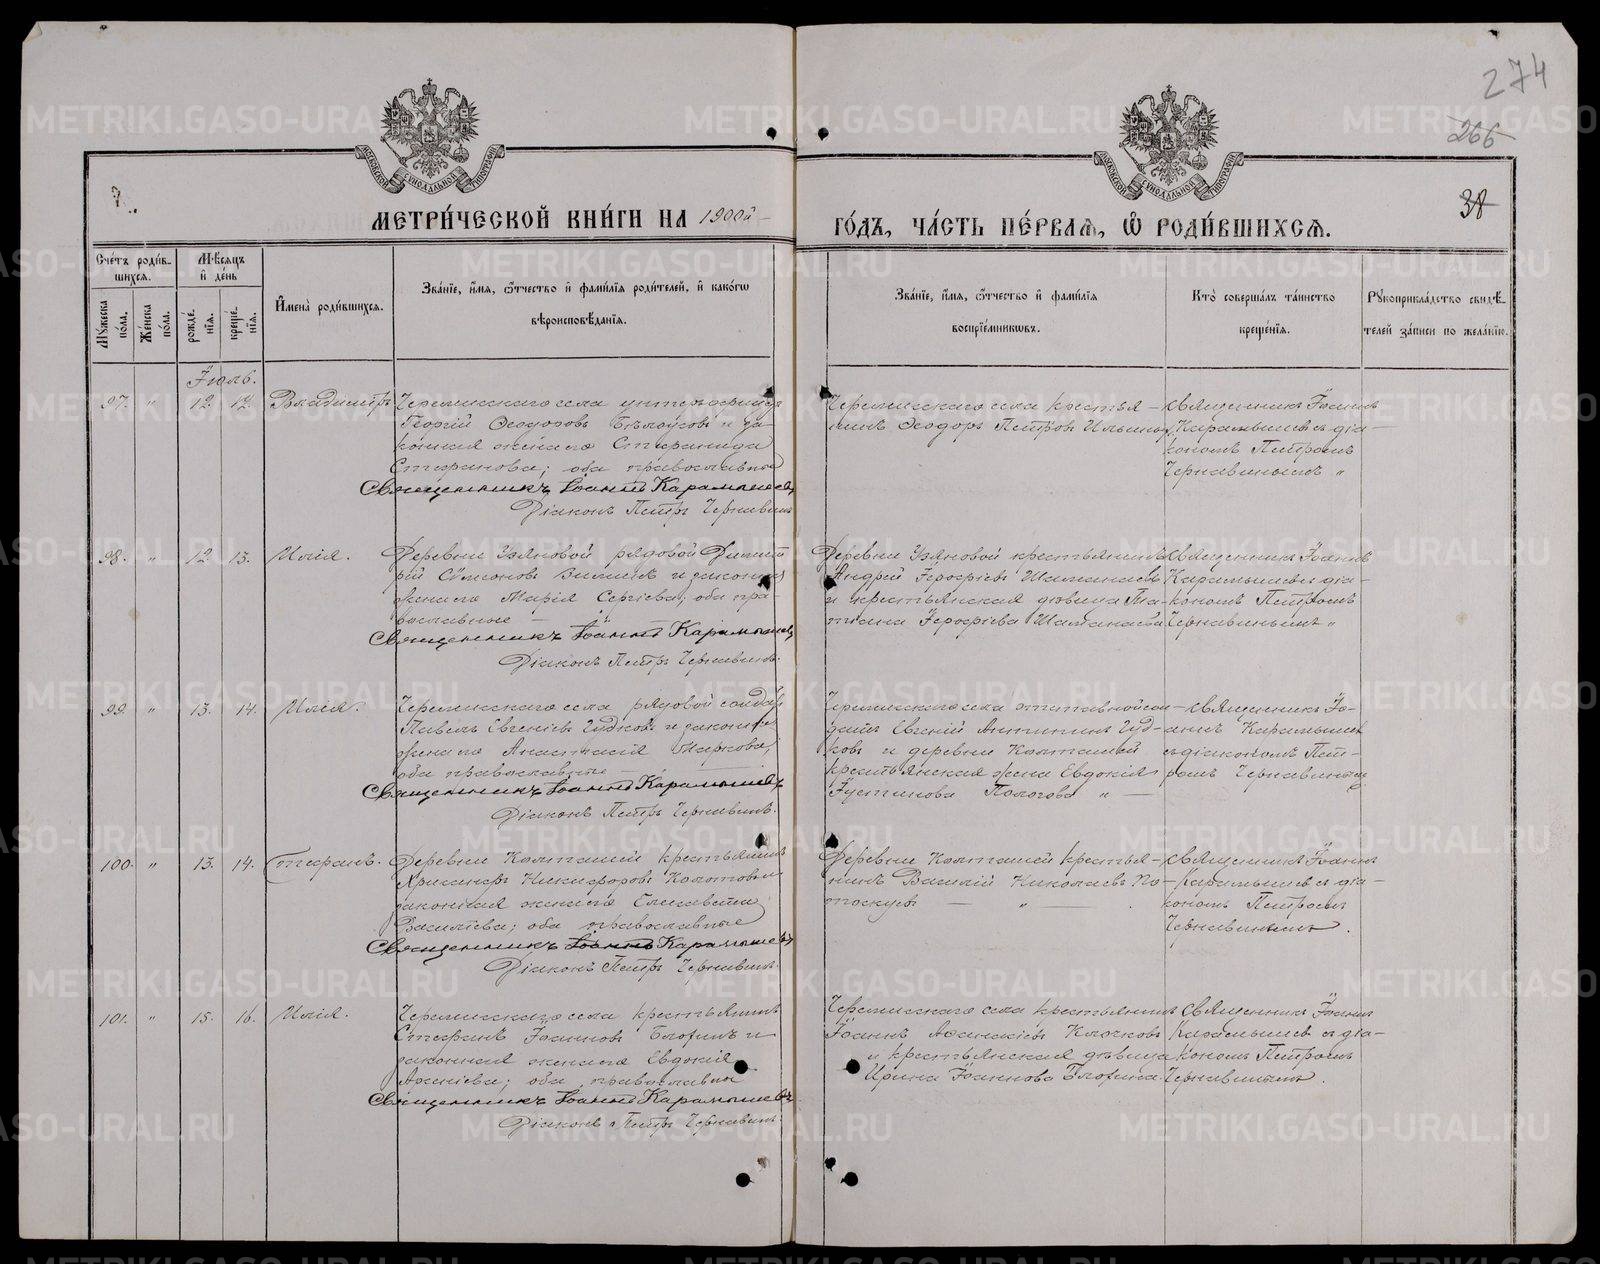 274
266
38
МЕТРИ́ЧЕСКОЙ КНИ́ГИ НА 1900й
ГО́ДЪ, ЧА́СТЬ ПЕ́РВАЯ, Ѡ҆ РОДИ́ВШИХСЯ.
Сче́тъ роди́вшихся.
Мѣ́сяцъ и҆ де́нь
И҆мена̀ роди́вшихся.
Зва́нїе, и҆́мя, ѻ҆́тчество и҆ фамѝлїя роди́телей, и҆ како́гѡ
вѣроисповѣ́данїя.
Зва́нїе, и҆́мя, ѻ҆́тчество и҆ фамѝлїя
воспрїе́мникѡвъ.
Кто̀ соверша́лъ та́инство
креще́нїя.
Рꙋкоприкла́дство свидѣ́телей за́писи по жела́нїю.
Мꙋ́жеска по́ла.
Же́нска по́ла.
рожде́нїя.
креще́нїя.
Іюль.
97. " 12. 12. Владиміръ
Черемисскаго села унтеръ офицеръ
Георгій Ѳеодоровъ Бѣлоусовъ и за-
конная жена его Стефанида
Стефанова; оба православные
Священникъ Іоаннъ Карамышевъ
Діаконъ Петръ Чернавинъ
Черемисскаго села крестья-
нинъ Ѳеодоръ Петровъ Ильиныхъ
Священникъ Іоаннъ
Карамышевъ съ діа-
кономъ Петромъ
Чернавинымъ "
98. " 12. 13. Илія.
Деревни Узяновой рядовой Димит
рій Сѵмеоновъ и законная
жена его Марія Сергіева; оба пра-
вославные —
Священникъ Іоаннъ Карамышевъ
Діаконъ Петръ Чернавинъ.
Деревни Узяновой крестьянинъ
Андрей Іероѳіевъ Шаманаевъ
и крестьянская дѣвица Та-
тіана Іероѳіева Шаманаева
Священникъ Іоаннъ
Карамышевъ съ діа-
кономъ Петромъ
Чернавинымъ "
99. " 13. 14. Илія.
Черемисскаго села рядовой солдатъ
Павелъ Евгеніевъ Гудковъ и законная
жена его Анастасія Маркова;
оба православные
Священникъ Іоаннъ Карамышевъ
Діаконъ Петръ Чернавинъ.
Черемисскаго села отставной сол-
датъ Евгеній Антипинъ Гуд-
ковъ и деревни Колташей
крестьянская жена Евдокія
Іустинова Пологова " —
Священникъ Іо-
аннъ Карамышевъ
съ діакономъ Пет-
ромъ Чернавинымъ
100. " 13. 14. Стефанъ.
Деревни Колташей крестьянинъ
Хрисанѳъ Никифоровъ Колотовъ и
законная жена его Елисавета
Васильева; оба православные
Священникъ Іоаннъ Карамышевъ
Діаконъ Петръ Чернавинъ.
Деревни Колташей крестья-
нинъ Василій Николаевъ По-
тоскуевъ — " — .
Священникъ Іоаннъ
Карамышевъ съ діа-
кономъ Петромъ
Чернавинымъ .
101. " 15. 16. Илія.
Черемисскаго села крестьянинъ
Стефанъ Іоанновъ Блохинъ и
законная жена его Евдокія
оба православны
Священникъ Іоаннъ Карамышевъ
Діаконъ Петръ Чернавинъ.
Черемисскаго села крестьянинъ
Іоаннъ Аѳанасіевъ Клочковъ
и крестьянская дѣвица
Ирина Іоаннова Блохина.
Священникъ Іоаннъ
Карамышевъ съ діа-
кономъ Петромъ
Чернавинымъ .
METRIKI.GASO-URAL.RU